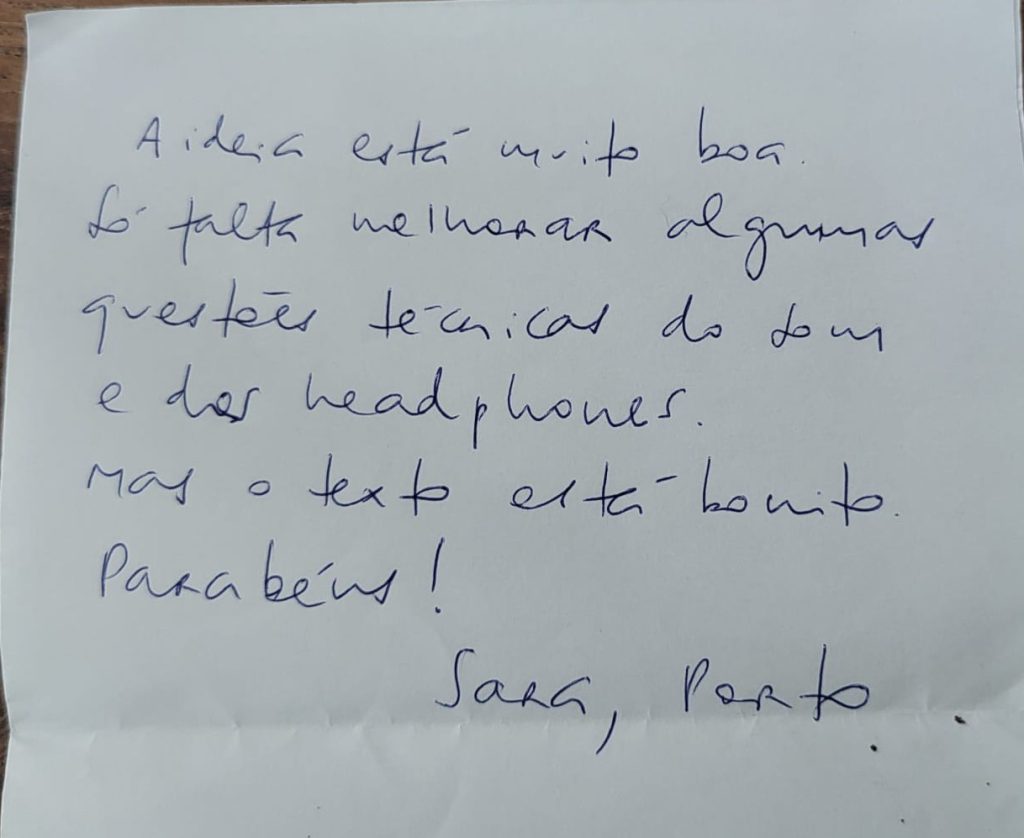 A ideia está muito boa.
Só falta melhorar algumas
questões técnicas do som
e dos headphones.
Mas o texto está bonito.
Parabéns!
Sara, Porto